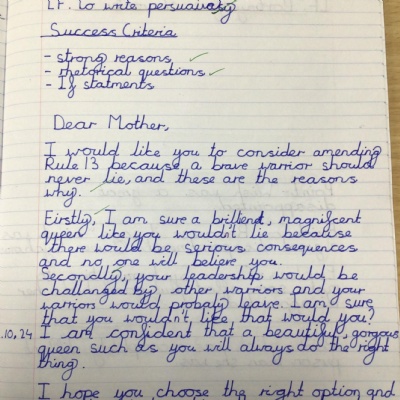 LF: to write persuasively
Success Criteria
- strong reasons
- rhetorical questions
- If statments
Dear Mother,
I would like you to consider amending
Rule 13 because a brave warrior should
never lie, and these are the reasons
why.
Firstly, I am sure a brillent, magnifcent
queen like you wouldn't lie because
there would be serious consequences
and no one will believe you.
Seconally, your leadership would be
challanged by other warriors and your
warriors would probaly leave. I am sure
that you wouldn't like that would you?
.10,24 I am confident that a beautiful, gorgous
queen such as you will always do the right
thing.
I hope you choose the right option and